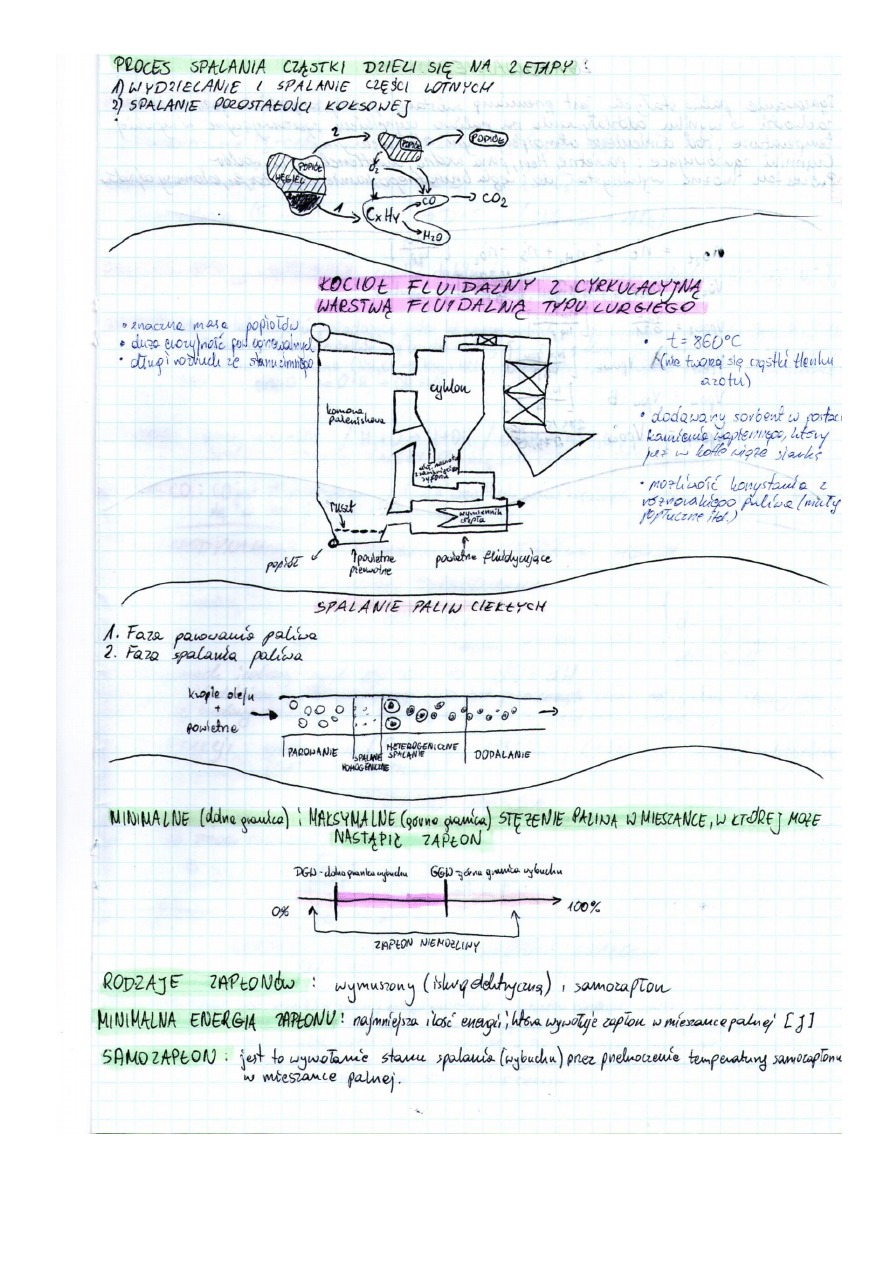 PROCES SPALANIA CZĄSTKI DZIELI SIĘ NA 2 ETAPY:
1) WYDZIELANIE I SPALANIE CZĘŚCI LOTNYCH
2) SPALANIE POZOSTAŁOŚCI KOKSOWEJ
2
POPIÓŁ
POPIÓŁ
POPIÓŁ
WĘGIEL
O2
1
CxHy
CO
CO2
H2O
KOCIOŁ FLUIDALNY Z CYRKULACYJNĄ
WARSTWĄ FLUIDALNĄ TYPU LURGIEGO
• znaczna masa popiołów
• duża erozyjność pow ogrzewalnych
• długi rozruch ze stanu zimnego
• t = 860°C
(nie tworzą się cząstki tlenku
azotu)
• dodawany sorbent w postaci
kamienia wapiennego, który
już w kotle wiąże siarkę
• możliwość korzystania z
różnorakiego paliwa (muły
popłuczne itd.)
cyklon
komora
paleniskowa
ruszt
wymiennik
ciepła
popiół
powietrze
pierwotne
powietrze fluidyzujące
SPALANIE PALIW CIEKŁYCH
1. Faza parowania paliwa
2. Faza spalania paliwa
krople oleju
+
powietrze
PAROWANIE
SPALANIE
HOMOGENICZNE
HETEROGENICZNE
SPALANIE
DOPALANIE
MINIMALNE (dolna granica) i MAKSYMALNE (górna granica) STĘŻENIE PALIWA W MIESZANCE, W KTÓREJ MOŻE
NASTĄPIĆ ZAPŁON
DGW - dolna granica wybuchu
GGW - górna granica wybuchu
0%
100%
ZAPŁON NIEMOŻLIWY
RODZAJE ZAPŁONÓW : wymuszony (iskrą elektryczną), samozapłon
MINIMALNA ENERGIA ZAPŁONU : najmniejsza ilość energii, która wywołuje zapłon w mieszance palnej [J]
SAMOZAPŁON : jest to wywołanie stanu spalania (wybuchu) przez przekroczenie temperatury samozapłonu
w mieszance palnej.